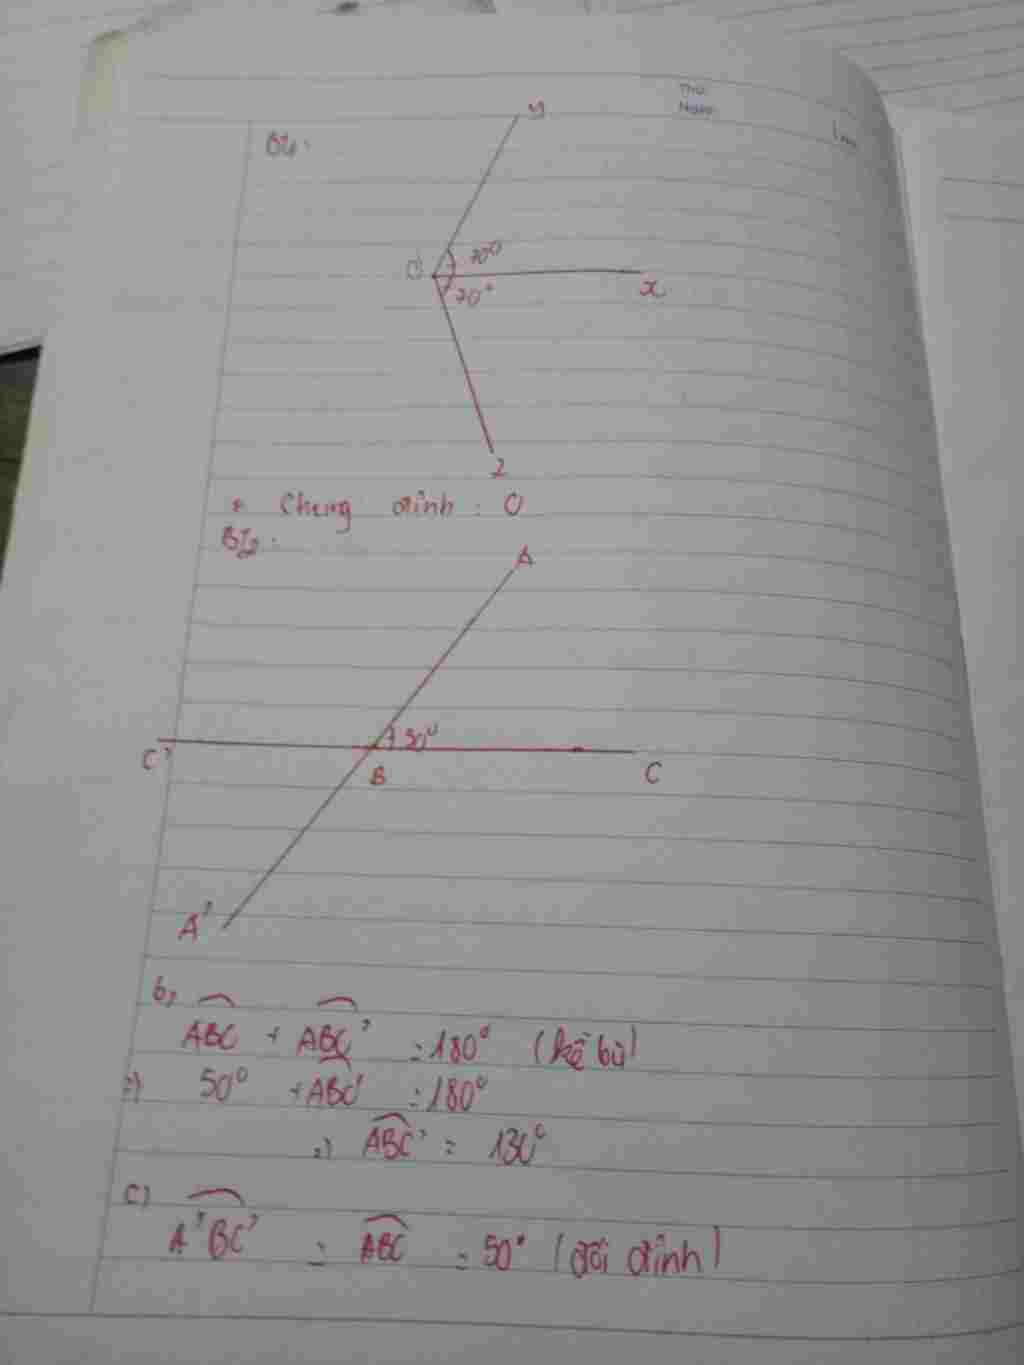 Thứ
Ngày
Bt1.
y
O 70°
70° x
z
* Chung đỉnh : O
Bt2.
A
50°
C' B C
A'
b,
ABC + ABC' = 180° (kề bù)
=) 50° + ABC' = 180°
=) ABC' = 130°
c)
A'BC' = ABC = 50° (đối đỉnh)